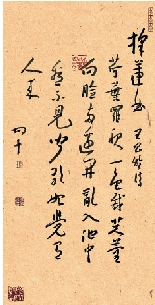 採蓮曲 王昌齡詩
荷葉羅裙一色裁芙蓉
向臉兩邊開亂入池中
看不見聞歌始覺有
人來